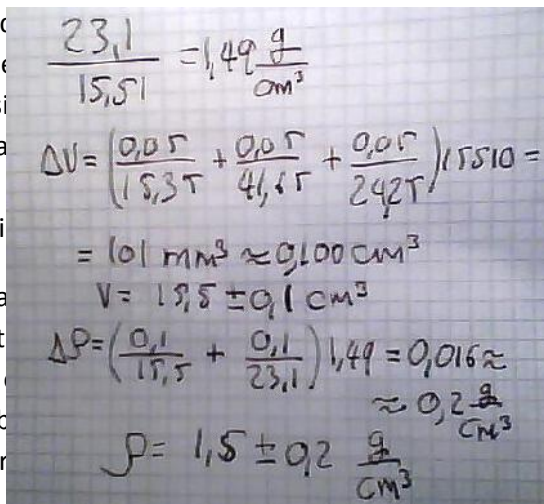 23,1 / 15,51 = 1,49 g/cm³
ΔV = (0,05/15,35 + 0,05/41,65 + 0,05/24,25) 15510 =
= 101 mm³ ≈ 0,100 cm³
V = 15,5 ± 0,1 cm³
Δρ = (0,1/15,5 + 0,1/23,1) 1,49 = 0,016 ≈
≈ 0,2 g/cm³
ρ = 1,5 ± 0,2 g/cm³